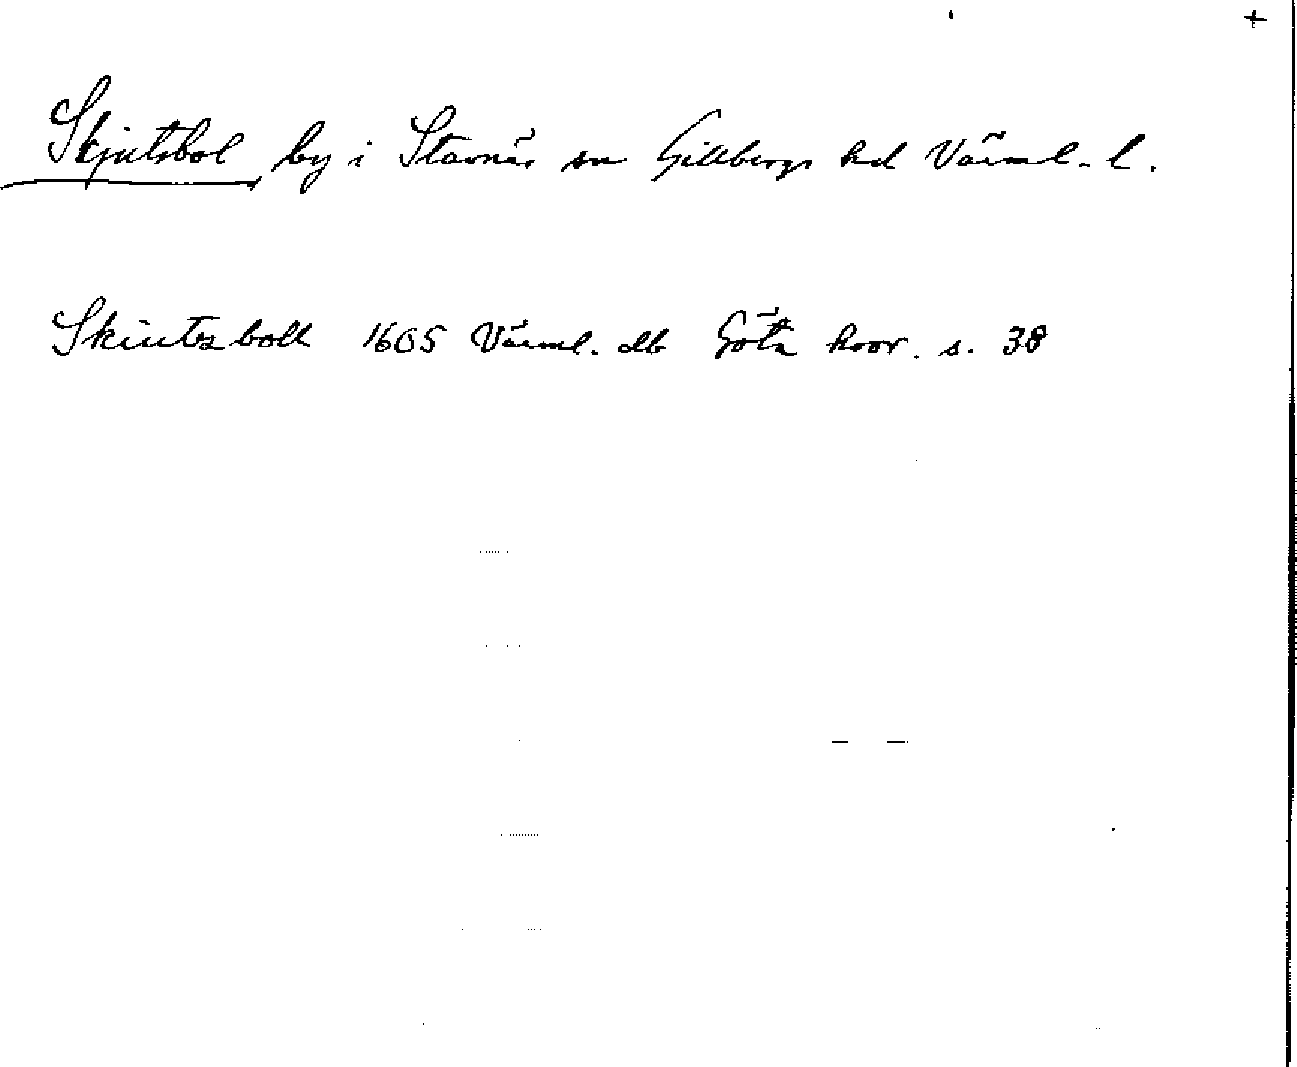 +
Skjutsbol by i Stavnäs sn Gillbergs hd Värml. l.
Skiutzboll 1605 Värml. db Göta hovr. s. 38